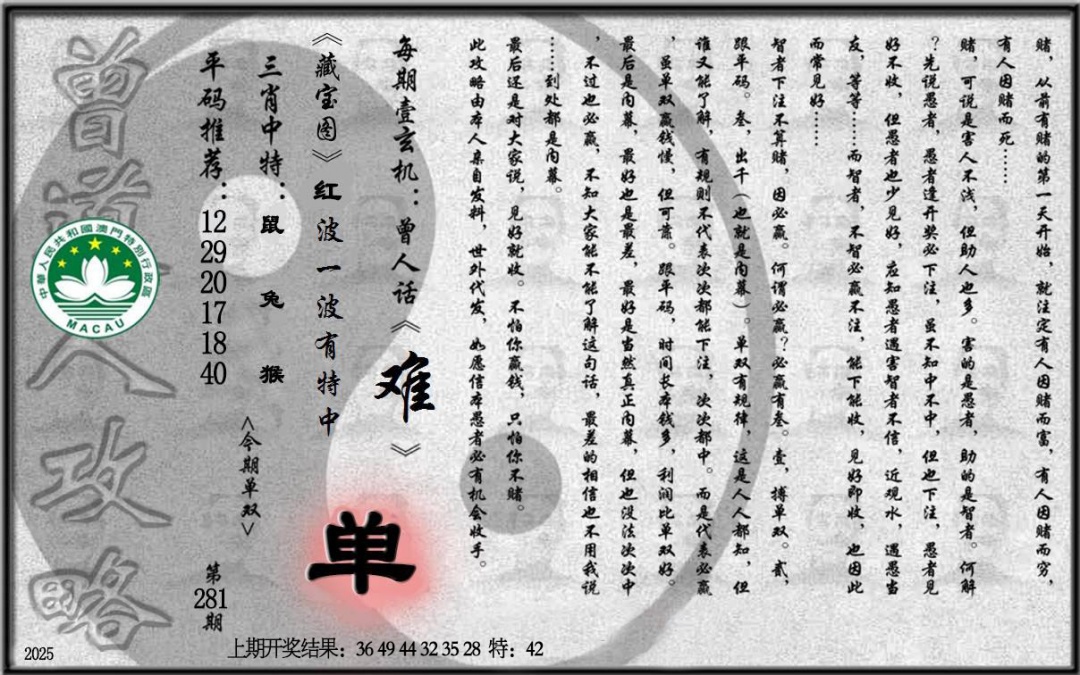 赌，从前有赌的第一天开始，就注定有人因赌而富，有人因赌而穷，
有人因赌而死……
赌，可说是害人不浅，但助人也多。害的是愚者，助的是智者。何解
？先说愚者，愚者逢开奖必下注，虽不知中不中，但也下注，愚者见
好不收，但愚者也少见好，应知愚者遇害智者不信，近观水，遇愚当
友，等等……而智者，不智必赢不注，能下能收，见好即收，也因此
而常见好……
智者下注不算赌，因必赢。何谓必赢？必赢有叁。壹，搏单双。贰，
跟单码。叁，出千（也就是内幕）。单双有规律，这是人人都知，但
谁又能了解，有规则不代表次次都能下注，次次都中。而是代表必赢
，虽单双赢钱慢，但可靠。跟单码，时间长本钱多，利润比单双好。
最后是内幕，最好也是最差，最好是当然真正内幕，但也没法次次中
，不过也必赢，不知大家能不能了解这句话，最差的相信也不用我说
……到处都是内幕。
最后还是对大家说，见好就收。不怕你赢钱，只怕你不赌。
此攻略由本人亲自发料，世外代发，如愿信本愚者必有机会收手。
每期壹玄机：曾人话《难》
《藏宝图》红波一波有特中
三肖中特：鼠 兔 猴
平码推荐：12 29 20 17 18 40
<今期单双>
单
第281期
曾道人攻略
中華人民共和國澳門特別行政區
MACAU
2025
上期开奖结果：36 49 44 32 35 28 特：42